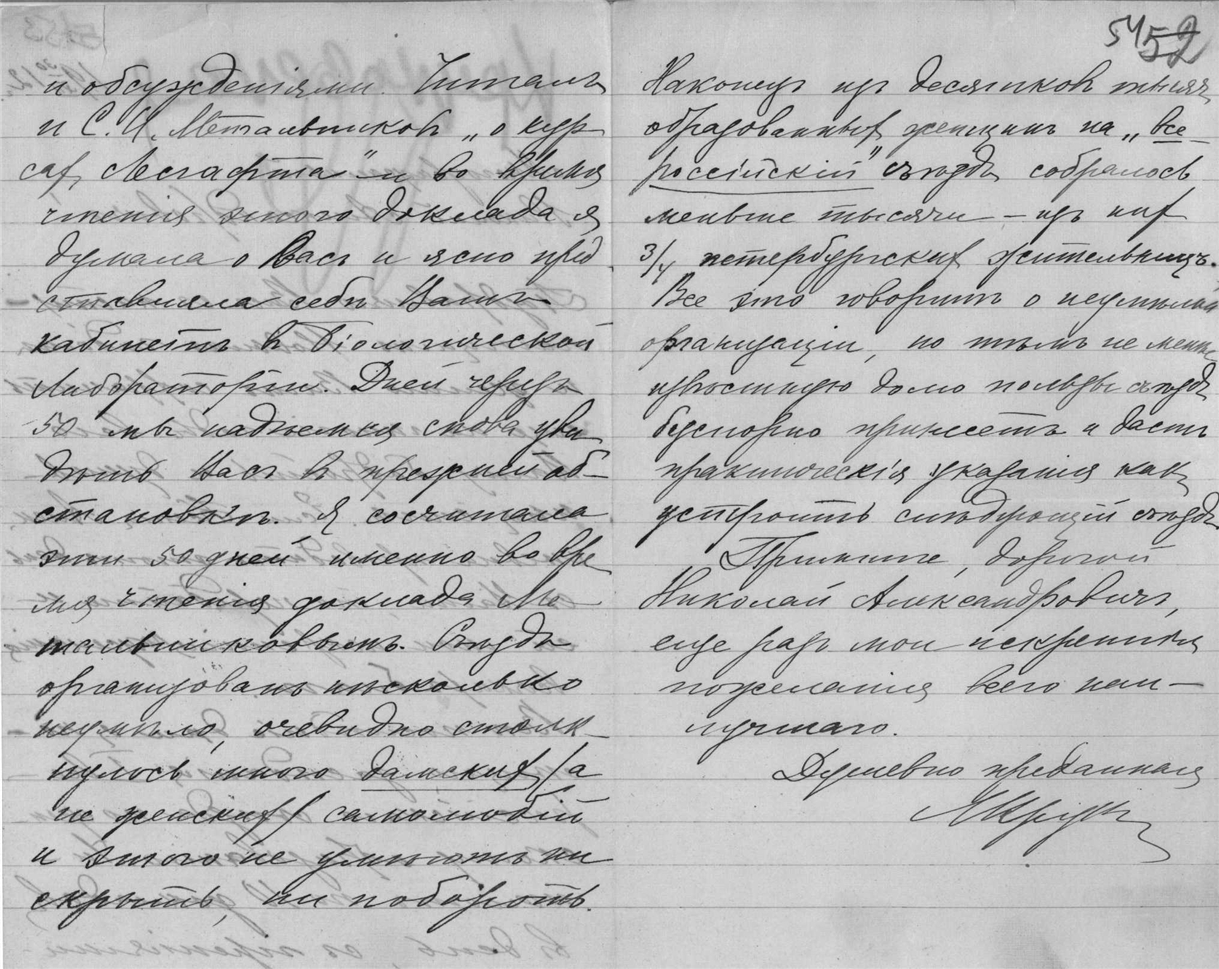 54 52
и обсужденіями. Читалъ
и С. И. Метальниковъ „о кур
сах Лесгафта" – и во время
чтенія этого доклада я
думала о Васъ и ясно пред
ставляла себѣ Вашъ
кабинетъ въ Біологической
Лабораторіи. Дней черезъ
50 мы надѣемся снова уви
дѣть Васъ въ прежней об-
становкѣ. Я сосчитала
эти 50 дней именно во вре
мя чтенія доклада Ме
тальниковымъ. Съѣздъ
организованъ нѣсколько
неумѣло, очевидно столк-
нулось много дамских (а
не женских) самолюбій
и этого не умѣютъ ни
скрыть, ни побороть.
Наконецъ изъ десятковъ тысяч
образованных женщинъ на „все-
россійскій" съѣздъ собралось
меньше тысячи – изъ них
3/4 петербургских жительницъ.
Все это говоритъ о неумѣлой
организаціи, но тѣмъ не менѣе
извѣстную долю пользы съѣздъ
безспорно принесетъ и дастъ
практическія указанія какъ
устроить слѣдующій съѣздъ
Примите, дорогой
Николай Александровичъ,
еще разъ мои искреннія
пожеланія всего наи-
лучшаго.
Душевно преданная